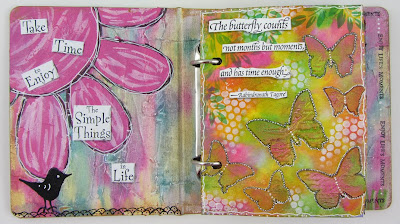 Take
Time
to
Enjoy
The
Simple
Things
in
Life
The butterfly counts
not months but moments,
and has time enough...
—Rabindranath Tagore
ENJOY LIFE'S MOMENTS
ENJOY LIFE'S MOMENTS